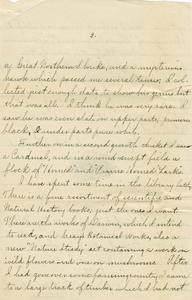 2.
a Great Northern Shrike, and a mysterious
hawk which passed me several times. I col-
lected just enough data to show his genus but
that was all. I think he was very rare. I
saw he was even slate on upper parts, primaries
black, & under parts pure white.
Further on in a second growth thicket I saw
a Cardinal, and in a wind swept field a
flock of Horned and Prairie Horned Larks.
I have spent some time in the library lately.
There is a fine assortment of scientific and
Natural History books, just the ones I want.
There are the works of Darwin, which I intend
to read, and Gray's Botanical Works, also a
new "Nature Study" set containing a work on
wild flowers and one on mushrooms. After
I had gone over some farming country, I came
to a large track of timber which I had not